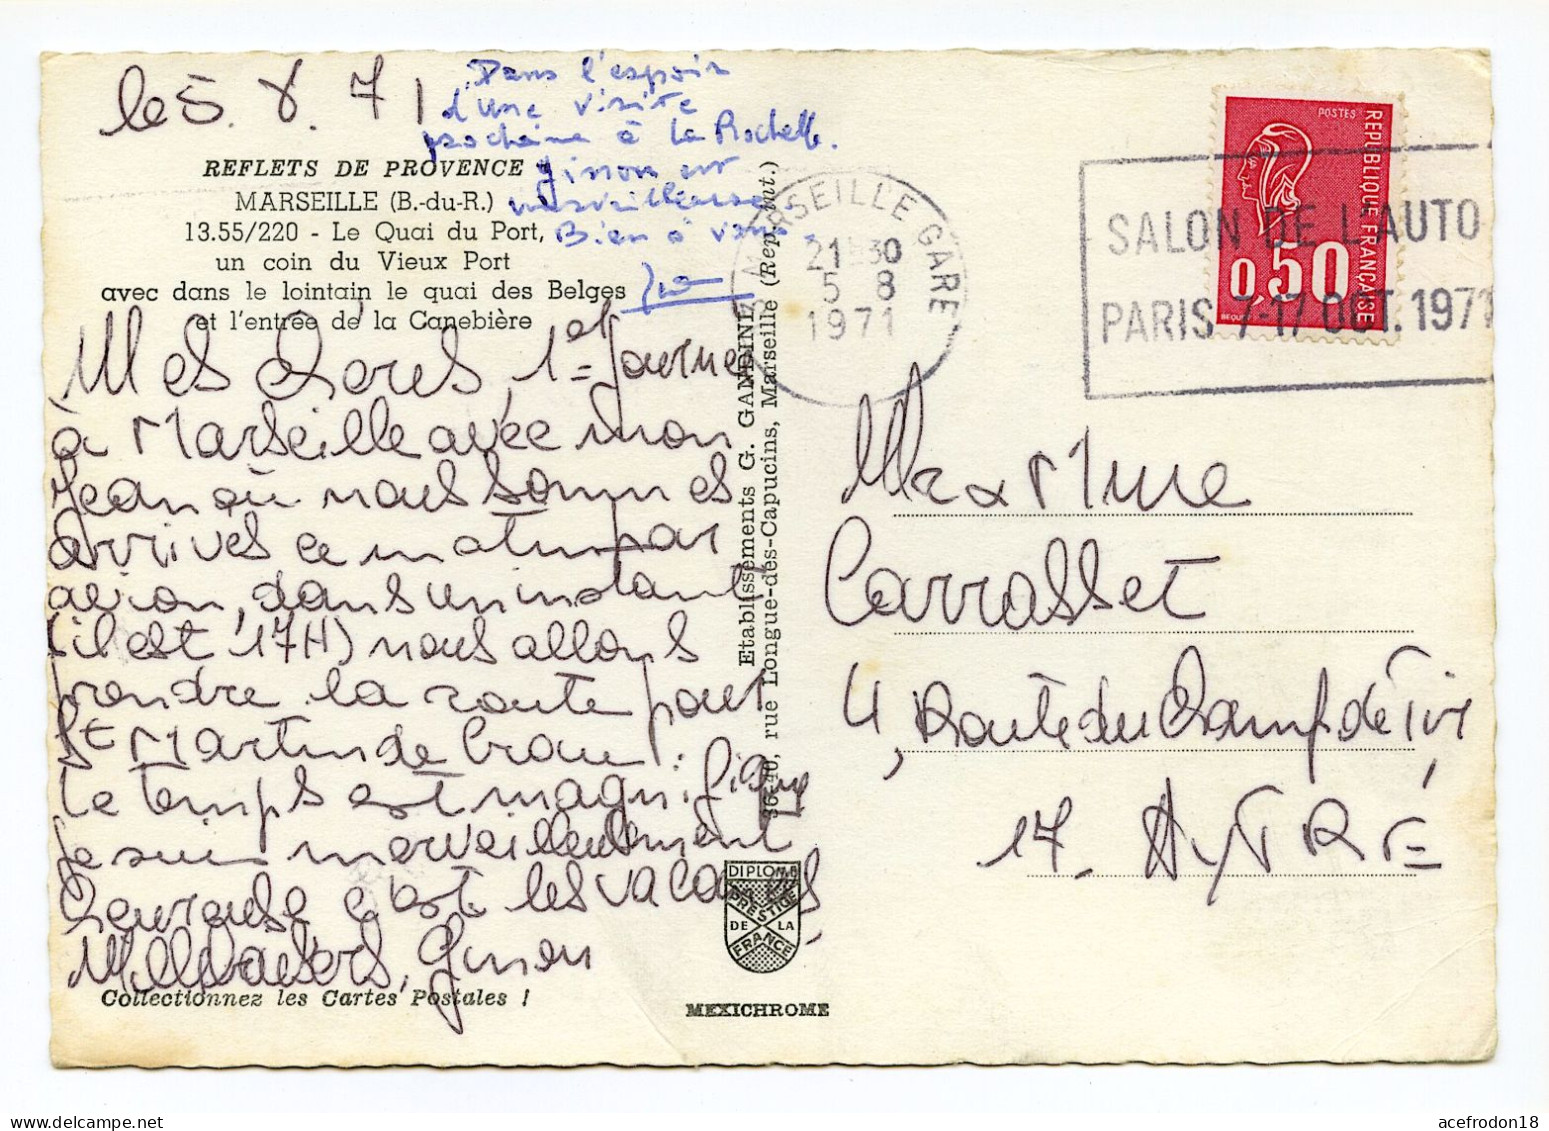 le 5. 8. 71
Dans l'espoir
d'une visite
prochaine à La Rochelle.
Ginou est
merveilleuse
Bien à vous.
REFLETS DE PROVENCE
MARSEILLE (B.-du-R.)
13.55/220 - Le Quai du Port,
un coin du Vieux Port
avec dans le lointain le quai des Belges
et l'entrée de la Canebière
Mes Chers, 1er Journée
à Marseille avec mon
Jean où nous sommes
arrivés ce matin par
avion, dans un instant
(il est 17H) nous allons
prendre la route pour
St Martin de Crau.
Le temps est magnifique
je suis merveilleusement
heureuse, c'est les vacances
Mille Baisers, Ginou
Collectionnez les Cartes Postales !
Etablissements G. GANDINI
36-40, rue Longue-des-Capucins, Marseille (Rep. int.)
DIPLOME
PRESTIGE
DE LA
FRANCE
MEXICHROME
MARSEILLE GARE
21H30
5 8
1971
SALON DE L'AUTO
PARIS 7-17 OCT. 1971
POSTES
REPUBLIQUE FRANÇAISE
0,50
BEQUET
Mr & Mme
Carrasset
4, Route du Champ de Tir
17. AYTRÉ
acefrodon18